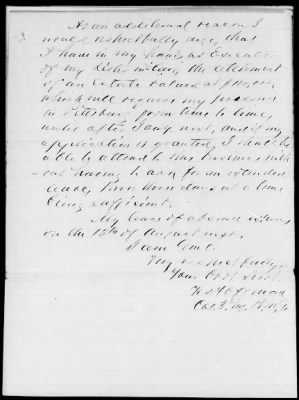 As an additional reason I
would respectfully urge, that
I have in my hands, as Executor
of my sister in law, the settlement
of an Estate valued at
which will require my presence
in Pittsburg from time to time,
until after Jany next, and if my
application is granted, I shall be
able to attend to this business with
out having to ask for an extended
leave, two or three days at a time
being sufficient.
My leave of absence expires
on the 12th of August inst.
I am Genl.
Very respectfully
Your Obt. Servt.